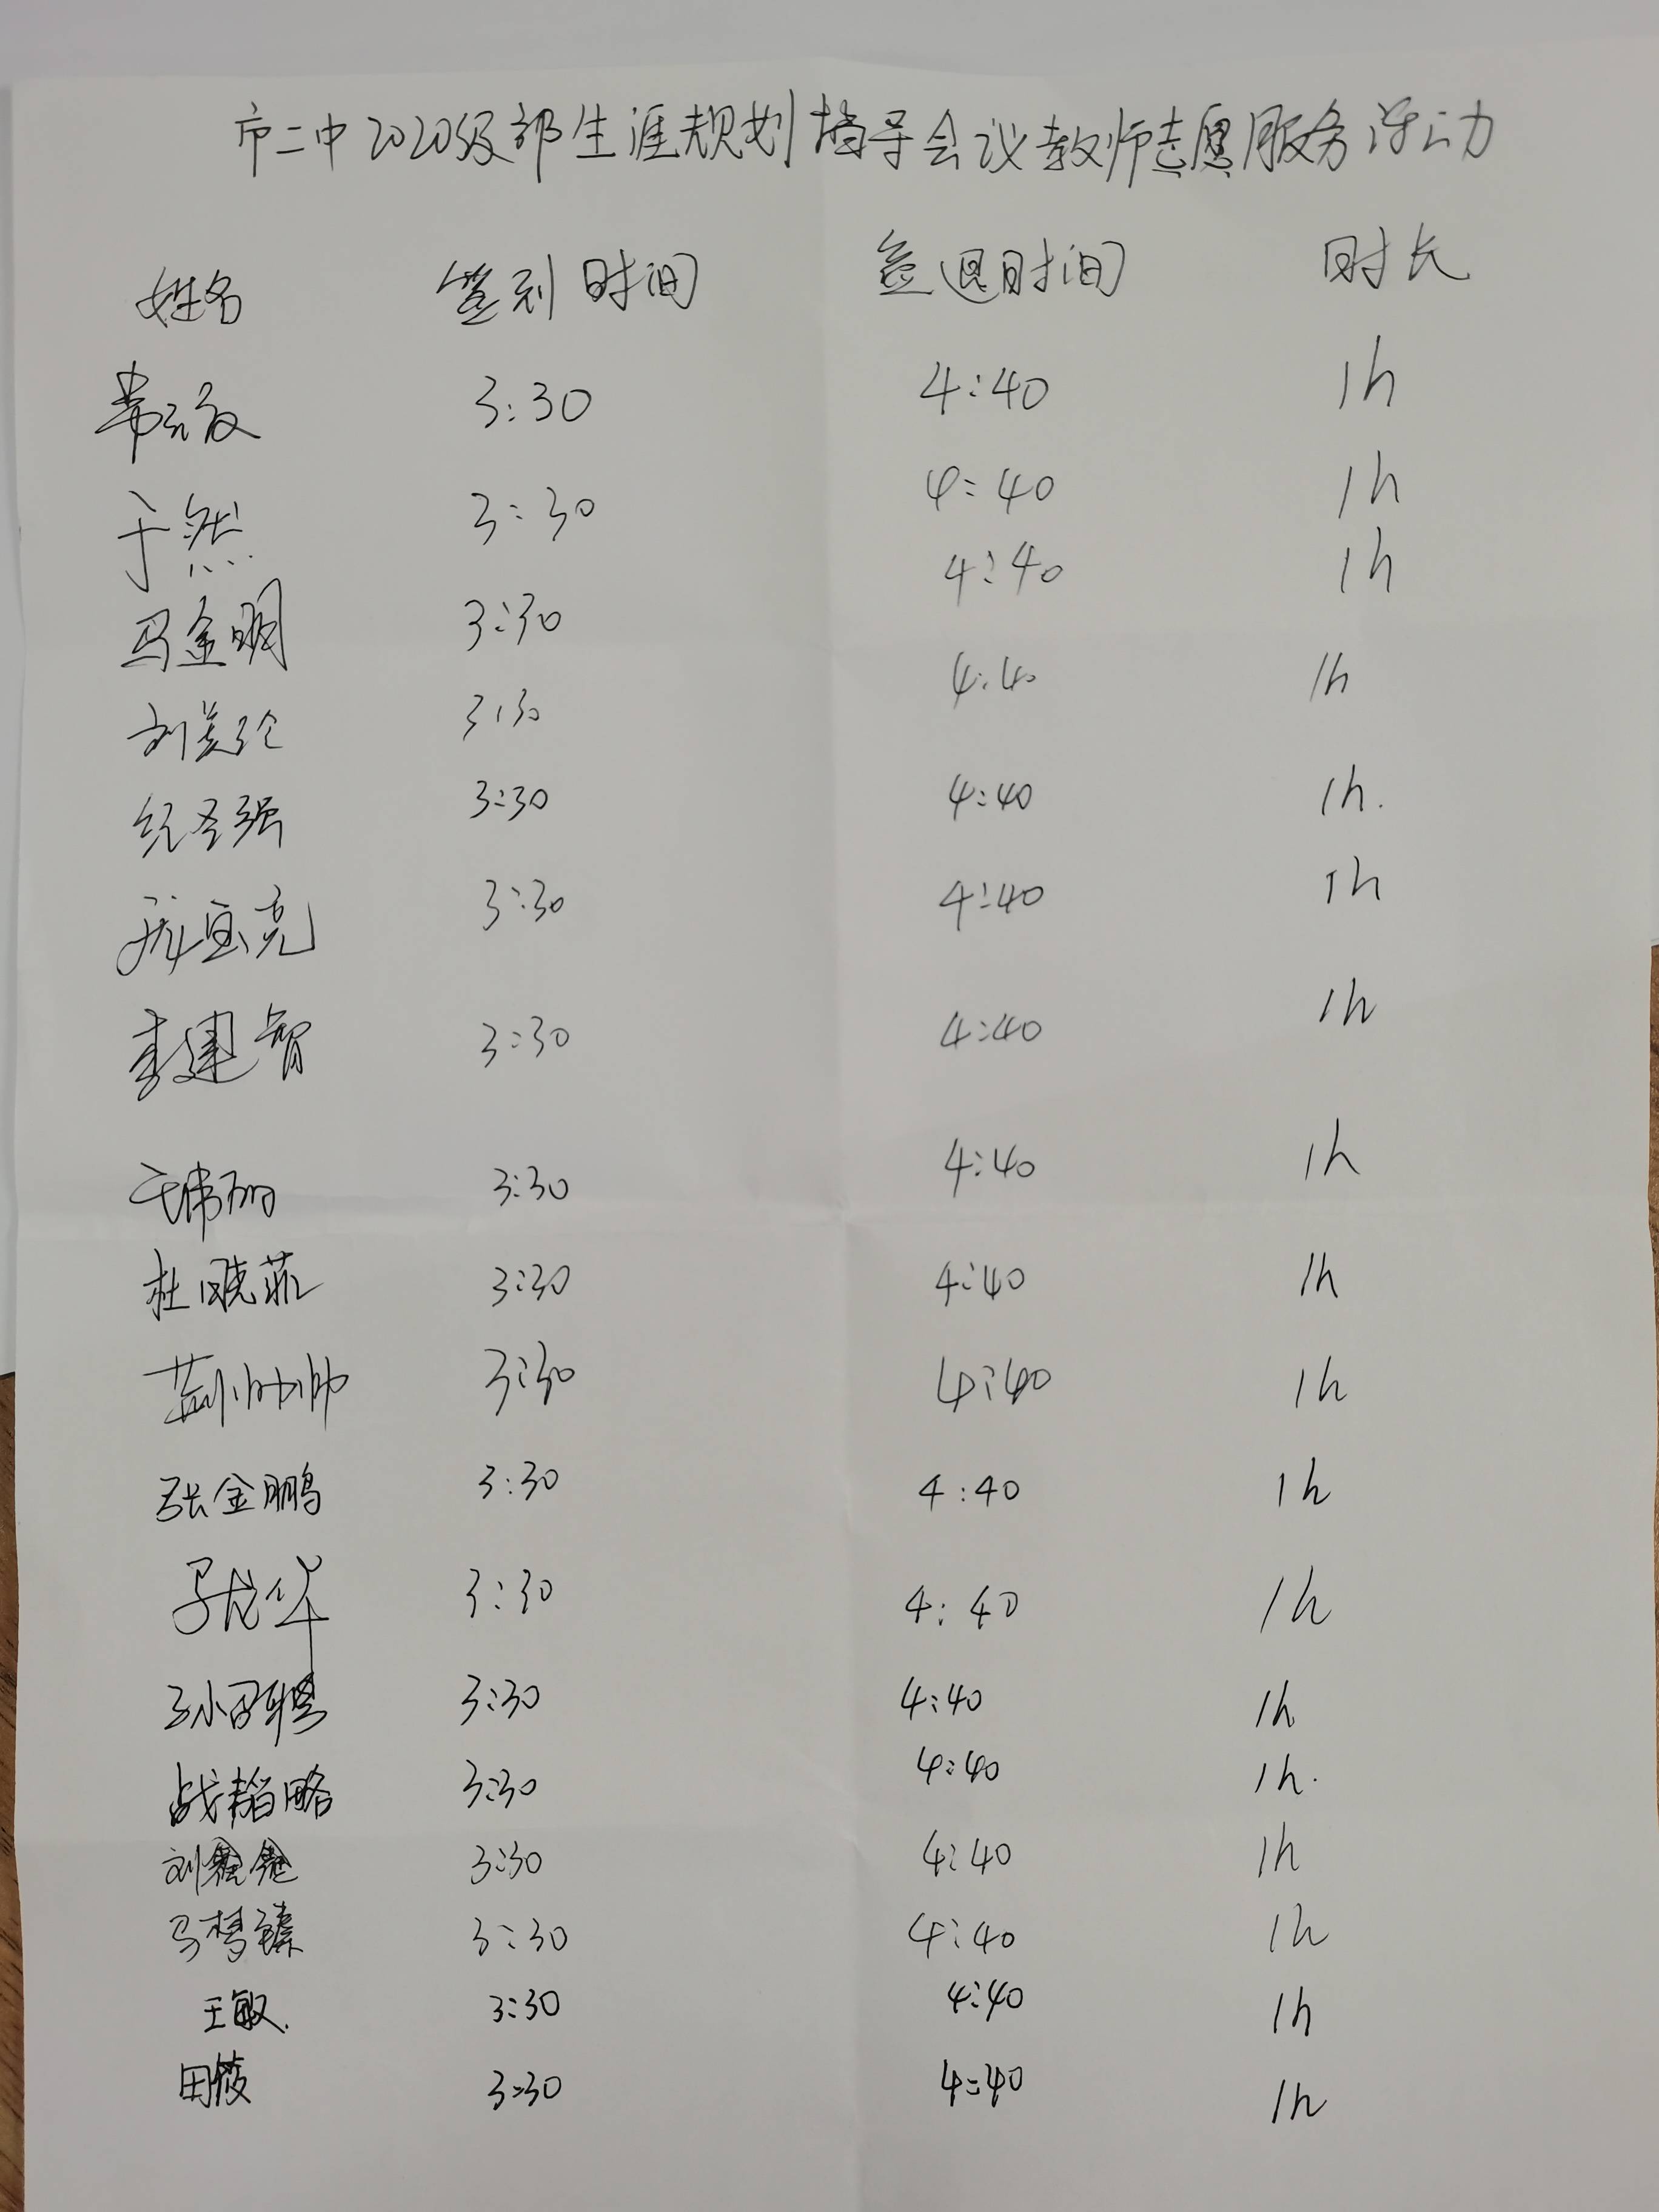 市二中2020级部生涯规划指导会议教师志愿服务活动
姓名 签到时间 签退时间 时长
3:30 4:40 1h
于然 3:30 4:40 1h
马金明 3:30 4:40 1h
刘美玲 3:30 4:40 1h
纪圣强 3:30 4:40 1h.
庞宝亮 3:30 4:40 1h
李建智 3:30 4:40 1h
于伟丽 3:30 4:40 1h
杜晓菲 3:30 4:40 1h
3:30 4:40 1h
张金鹏 3:30 4:40 1h
马龙华 3:30 4:40 1h
3:30 4:40 1h
战韬略 3:30 4:40 1h.
刘 3:30 4:40 1h
马梦臻 3:30 4:40 1h
王敏. 3:30 4:40 1h
田筱 3:30 4:40 1h